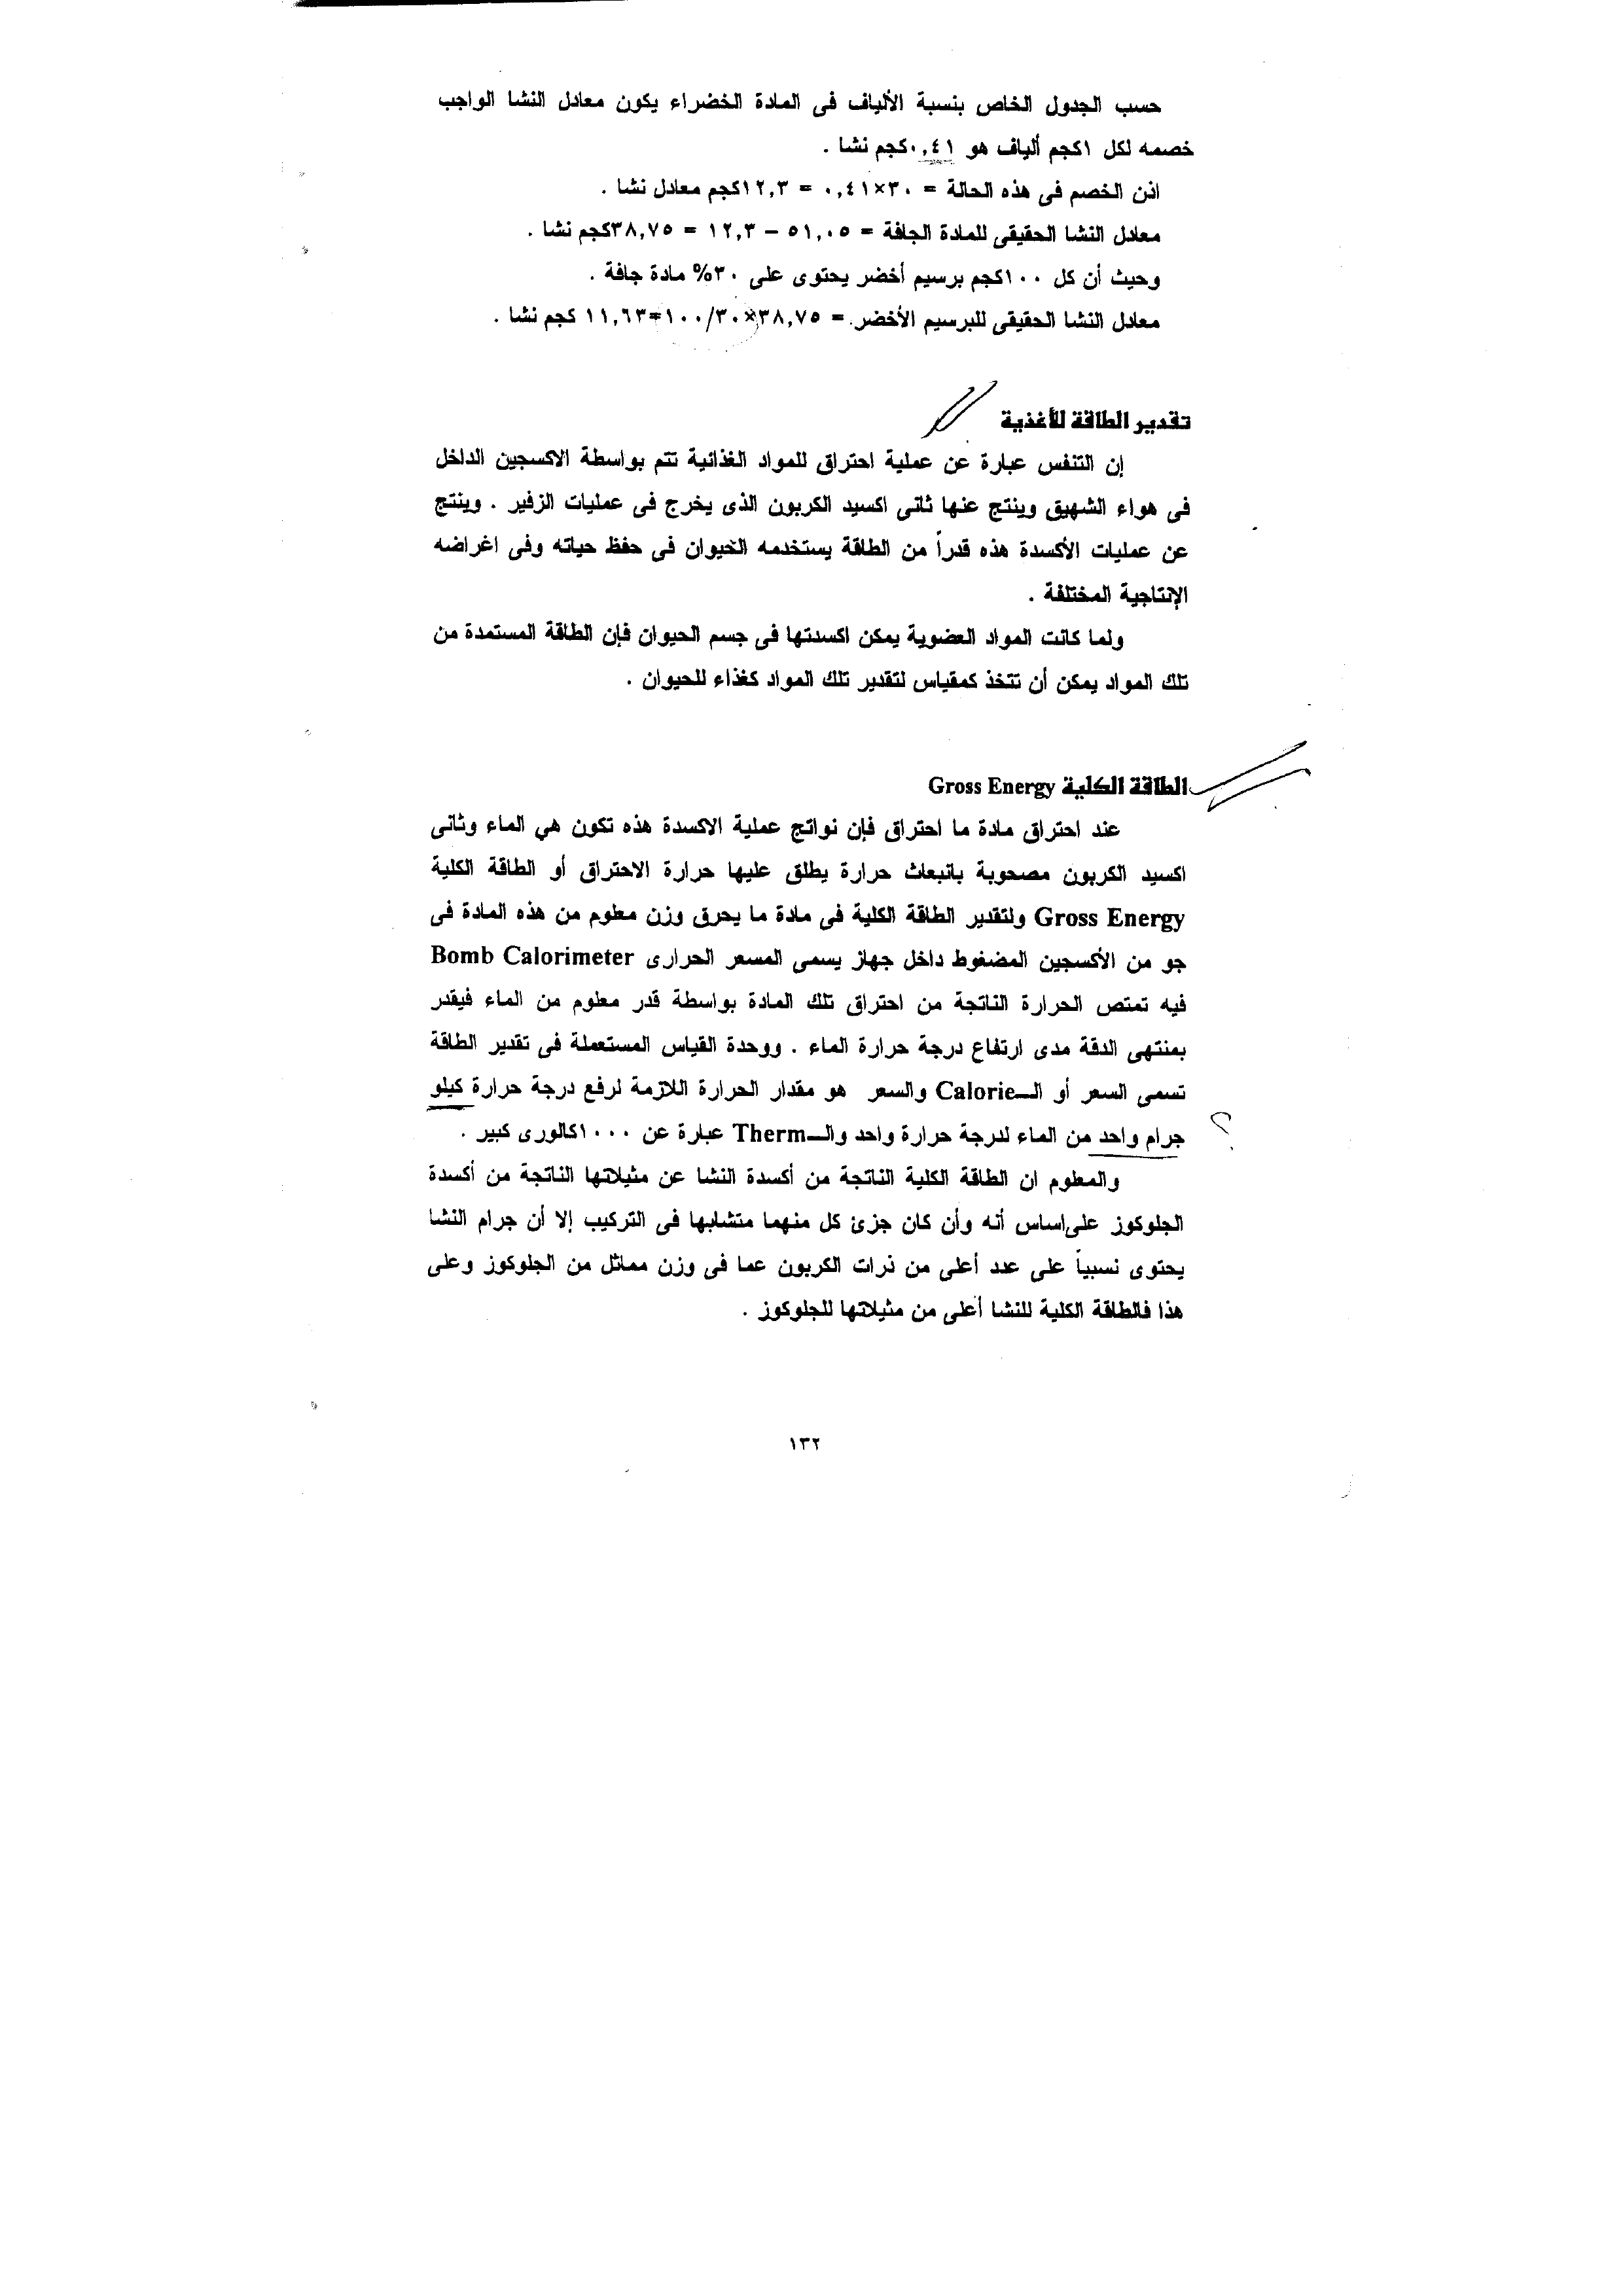 حسب الجدول الخاص بنسبة الألياف فى المادة الخضراء يكون معادل النشا الواجب
خصمه لكل ١كجم ألياف هو ٠,٤١كجم نشا .
اذن الخصم فى هذه الحالة = ٣٠×٠,٤١ = ١٢,٣كجم معادل نشا .
معادل النشا الحقيقى للمادة الجافة = ٥١,٠٥ – ١٢,٣ = ٣٨,٧٥كجم نشا .
وحيث أن كل ١٠٠كجم برسيم أخضر يحتوى على ٣٠% مادة جافة .
معادل النشا الحقيقى للبرسيم الأخضر = ٣٨,٧٥×١٠٠/٣٠=١١,٦٣ كجم نشا .
تقدير الطاقة للأغذية
إن التنفس عبارة عن عملية احتراق للمواد الغذائية تتم بواسطة الاكسجين الداخل
فى هواء الشهيق وينتج عنها ثانى اكسيد الكربون الذى يخرج فى عمليات الزفير . وينتج
عن عمليات الأكسدة هذه قدراً من الطاقة يستخدمه الحيوان فى حفظ حياته وفى اغراضه
الإنتاجية المختلفة .
ولما كانت المواد العضوية يمكن اكسدتها فى جسم الحيوان فإن الطاقة المستمدة من
تلك المواد يمكن أن تتخذ كمقياس لتقدير تلك المواد كغذاء للحيوان .
الطاقة الكلية Gross Energy
عند احتراق مادة ما احتراق فإن نواتج عملية الاكسدة هذه تكون هي الماء وثانى
اكسيد الكربون مصحوبة بانبعاث حرارة يطلق عليها حرارة الاحتراق أو الطاقة الكلية
Gross Energy ولتقدير الطاقة الكلية فى مادة ما يحرق وزن معلوم من هذه المادة فى
جو من الأكسجين المضغوط داخل جهاز يسمى المسعر الحرارى Bomb Calorimeter
فيه تمتص الحرارة الناتجة من احتراق تلك المادة بواسطة قدر معلوم من الماء فيقدر
بمنتهى الدقة مدى ارتفاع درجة حرارة الماء . ووحدة القياس المستعملة فى تقدير الطاقة
تسمى السعر أو الـCalorie والسعر هو مقدار الحرارة اللازمة لرفع درجة حرارة كيلو
جرام واحد من الماء لدرجة حرارة واحد والـTherm عبارة عن ١٠٠٠كالورى كبير .
والمعلوم ان الطاقة الكلية الناتجة من أكسدة النشا عن مثيلاتها الناتجة من أكسدة
الجلوكوز على اساس أنه وأن كان جزئ كل منهما متشابها فى التركيب إلا أن جرام النشا
يحتوى نسبياً على عدد أعلى من ذرات الكربون عما فى وزن مماثل من الجلوكوز وعلى
هذا فالطاقة الكلية للنشا أعلى من مثيلاتها للجلوكوز .
١٣٢